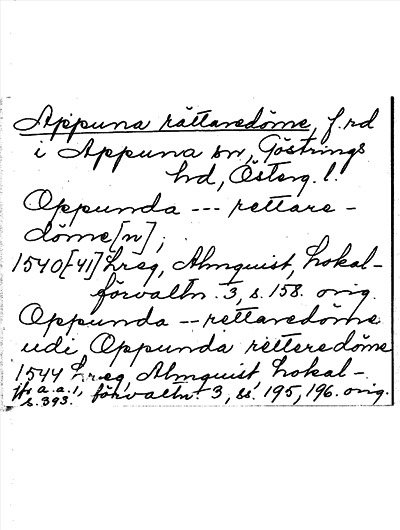 Appuna rättaredöme, f.rd
i Appuna sn, Göstrings
hd, Österg. l.
Oppunda --- rettare-
döme[n];
1540[-41] Lreg, Almquist, Lokal-
förvaltn. 3, s. 158. orig.
Oppunda -- rettaredöme
udi Oppunda retteredöme
1544 Lreg, Almquist, Lokal-
förvaltn. 3, ss. 195, 196. orig.
Jfr a.a. 1,
s. 393.